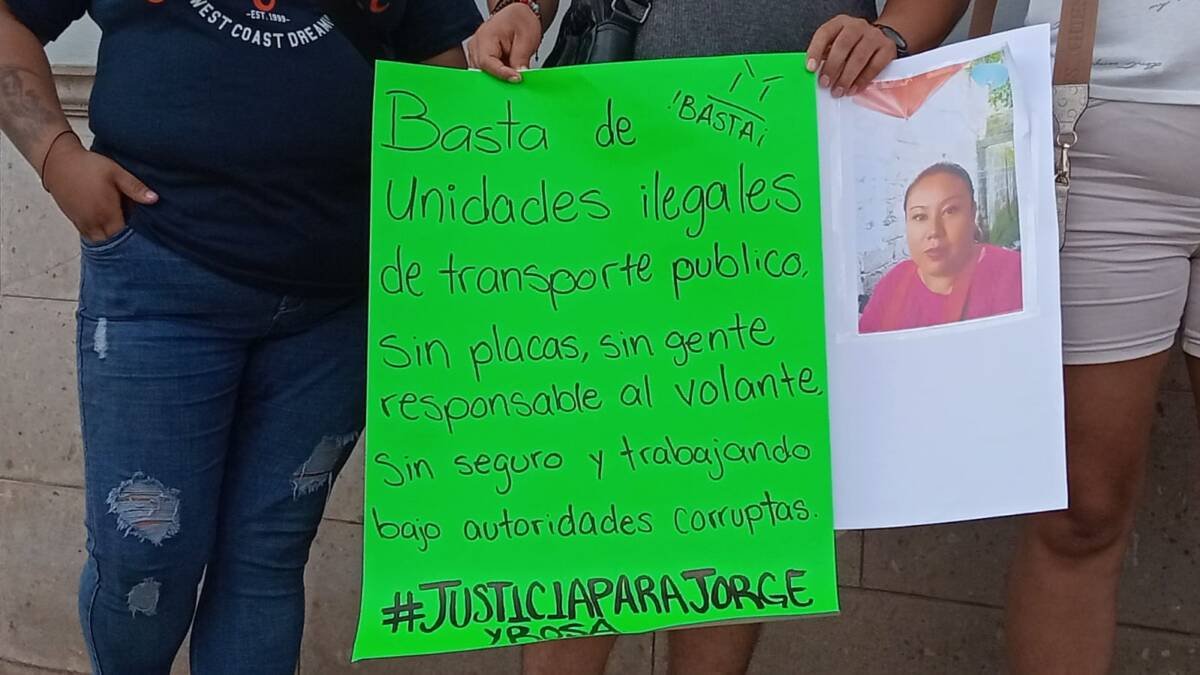 -EST. 1999-
WEST COAST DREAM
Basta de
¡BASTA!
Unidades ilegales
de transporte publico,
Sin placas, sin gente
responsable al volante,
Sin seguro y trabajando
bajo autoridades corruptas.
#JUSTICIAPARAJORGE
Y ROSA